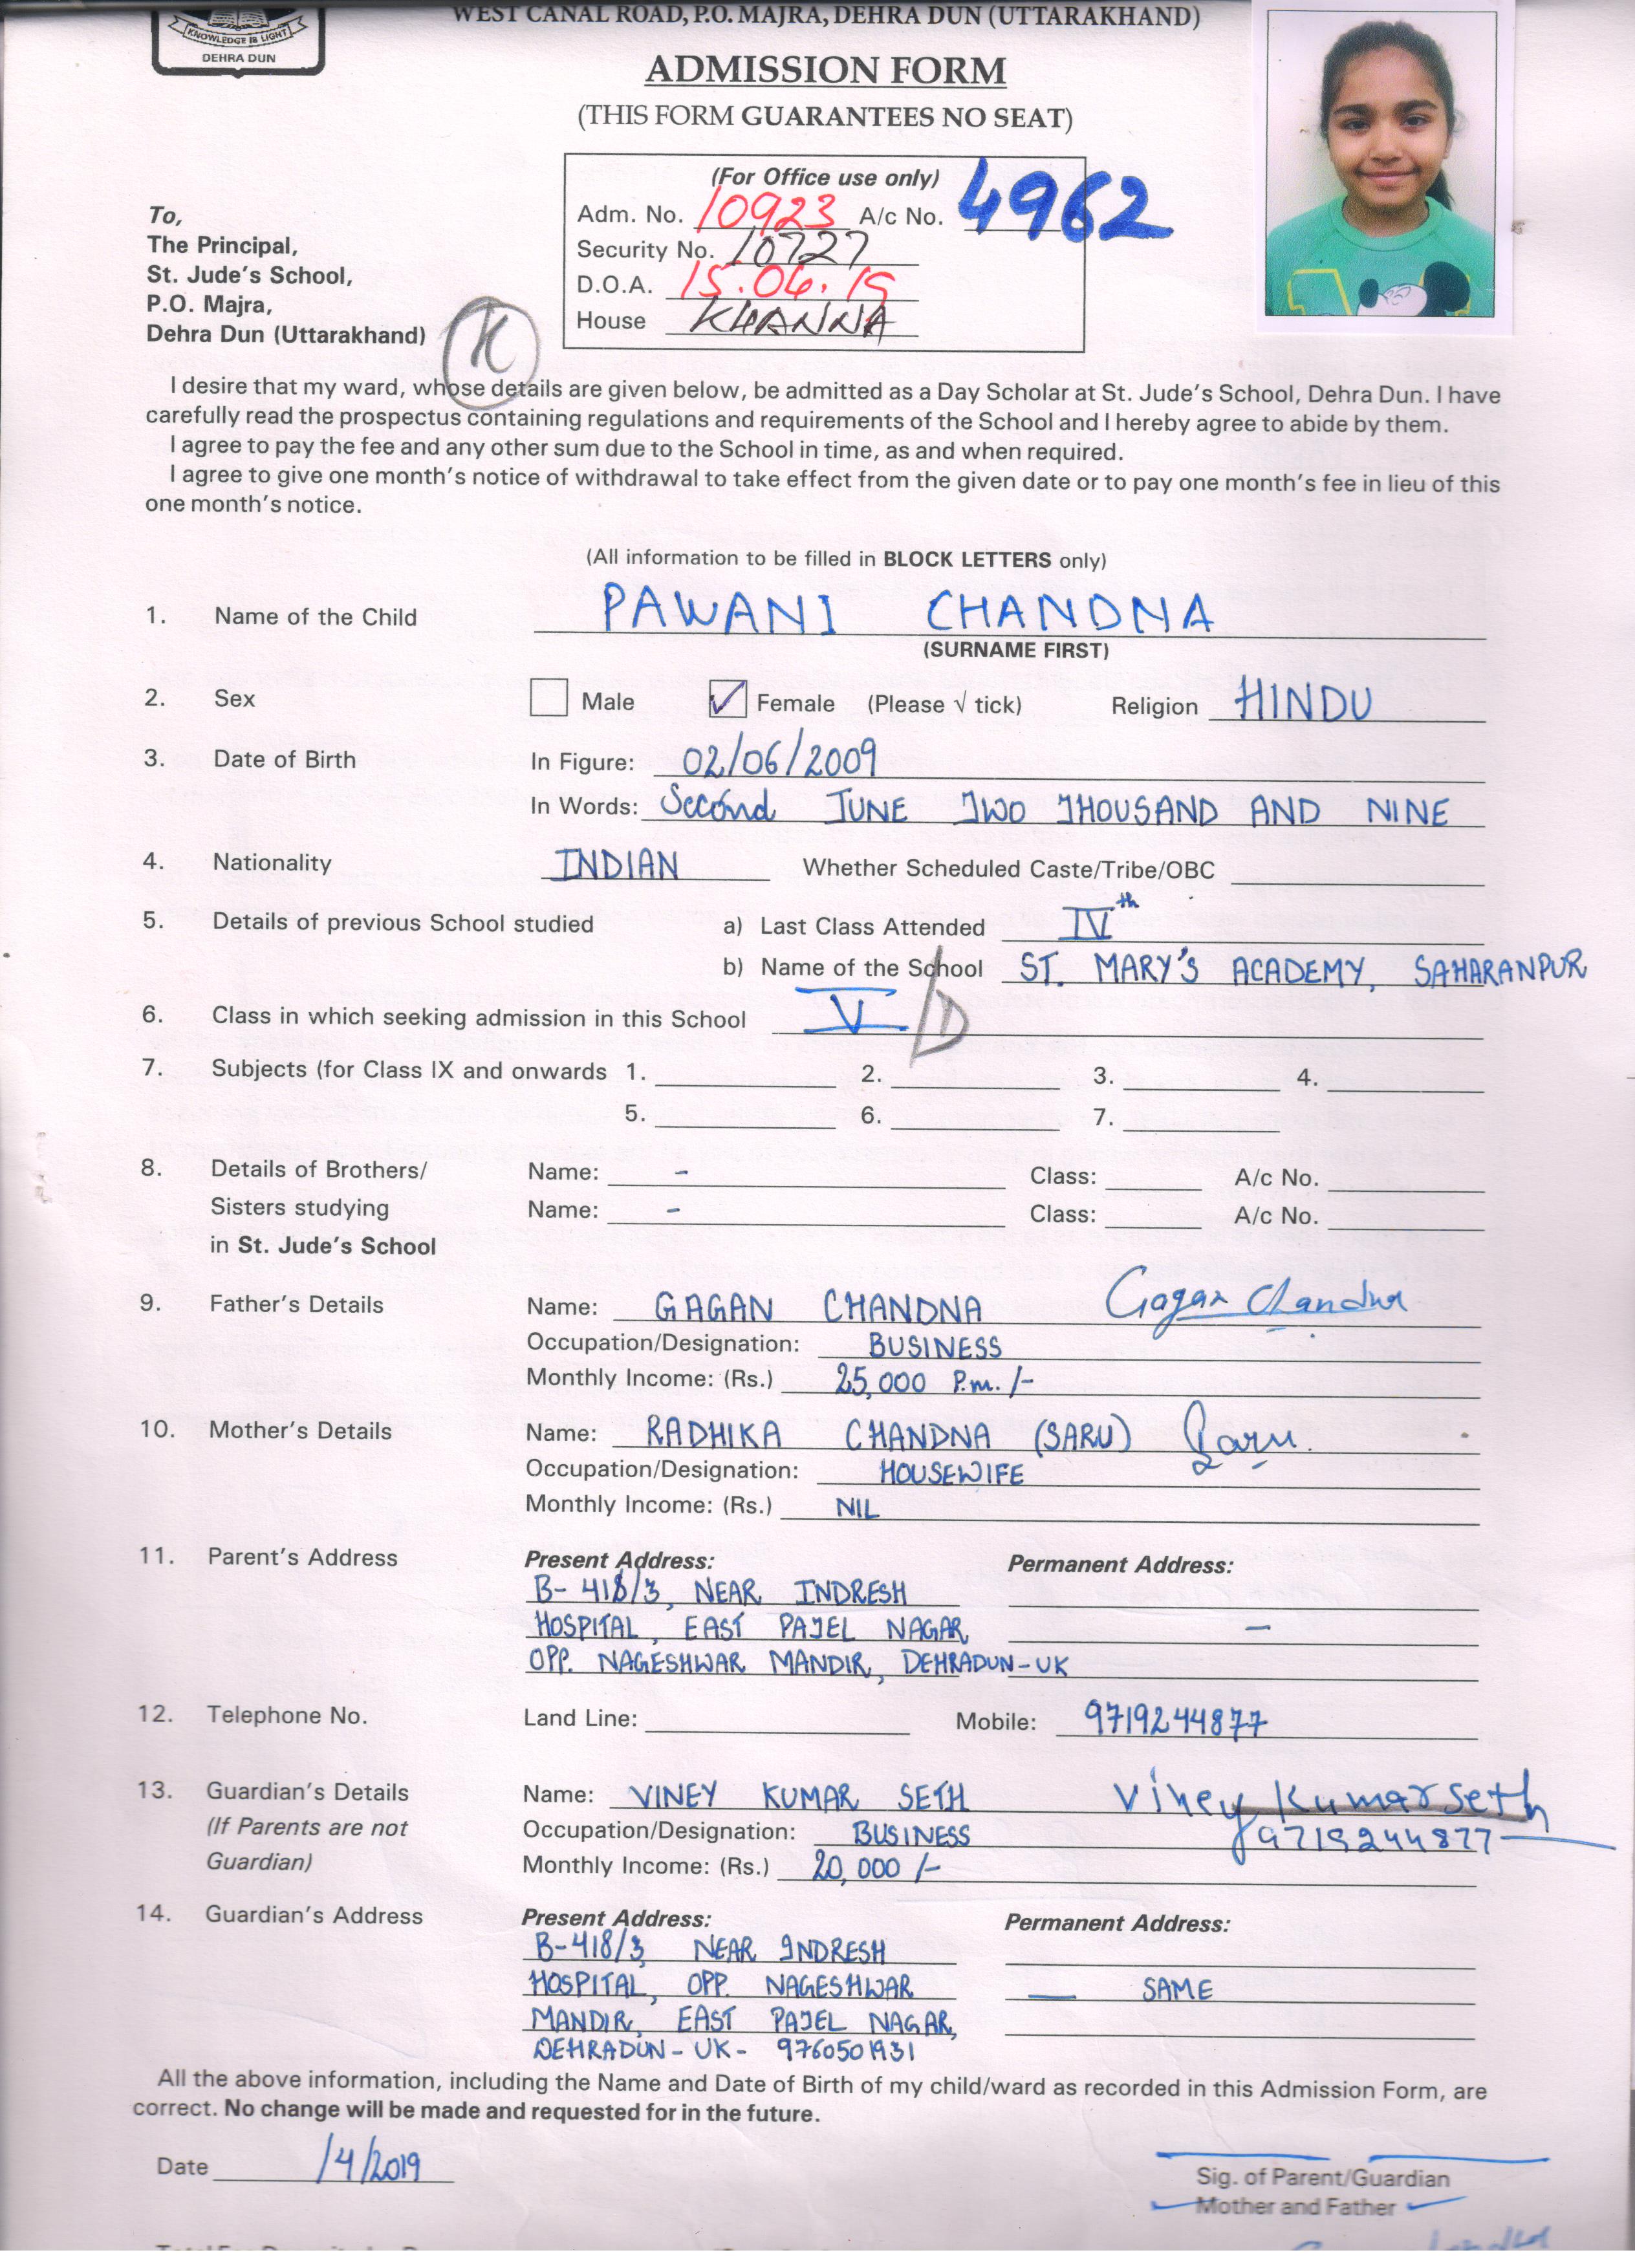 KNOWLEDGE IS LIGHT
DEHRA DUN
WEST CANAL ROAD, P.O. MAJRA, DEHRA DUN (UTTARAKHAND)
ADMISSION FORM
(THIS FORM GUARANTEES NO SEAT)
(For Office use only)
Adm. No. 10923 A/c No. 4962
Security No. 10727
D.O.A. 15.04.19
House KHANNA
To,
The Principal,
St. Jude's School,
P.O. Majra,
Dehra Dun (Uttarakhand)
K
I desire that my ward, whose details are given below, be admitted as a Day Scholar at St. Jude's School, Dehra Dun. I have
carefully read the prospectus containing regulations and requirements of the School and I hereby agree to abide by them.
I agree to pay the fee and any other sum due to the School in time, as and when required.
I agree to give one month's notice of withdrawal to take effect from the given date or to pay one month's fee in lieu of this
one month's notice.
(All information to be filled in BLOCK LETTERS only)
1. Name of the Child PAWANI CHANDNA
(SURNAME FIRST)
2. Sex Male ✓ Female (Please √ tick) Religion HINDU
3. Date of Birth In Figure: 02/06/2009
In Words: Second JUNE TWO THOUSAND AND NINE
4. Nationality INDIAN Whether Scheduled Caste/Tribe/OBC
5. Details of previous School studied a) Last Class Attended IVth
b) Name of the School ST. MARY'S ACADEMY, SAHARANPUR
6. Class in which seeking admission in this School V/D
7. Subjects (for Class IX and onwards 1. 2. 3. 4.
5. 6. 7.
8. Details of Brothers/ Name: - Class: A/c No.
Sisters studying Name: - Class: A/c No.
in St. Jude's School
9. Father's Details Name: GAGAN CHANDNA Gagan Chandna
Occupation/Designation: BUSINESS
Monthly Income: (Rs.) 25,000 P.m. /-
10. Mother's Details Name: RADHIKA CHANDNA (SARU) Saru
Occupation/Designation: HOUSEWIFE
Monthly Income: (Rs.) NIL
11. Parent's Address Present Address: Permanent Address:
B-418/3, NEAR INDRESH
HOSPITAL, EAST PATEL NAGAR -
OPP. NAGESHWAR MANDIR, DEHRADUN-UK
12. Telephone No. Land Line: Mobile: 9719244877
13. Guardian's Details Name: VINEY KUMAR SETH Viney Kumar Seth
(If Parents are not Occupation/Designation: BUSINESS 9719244877
Guardian) Monthly Income: (Rs.) 20,000 /-
14. Guardian's Address Present Address: Permanent Address:
B-418/3, NEAR INDRESH
HOSPITAL, OPP. NAGESHWAR — SAME
MANDIR, EAST PATEL NAGAR,
DEHRADUN - UK - 9760501931
All the above information, including the Name and Date of Birth of my child/ward as recorded in this Admission Form, are
correct. No change will be made and requested for in the future.
Date /4/2019
Sig. of Parent/Guardian
Mother and Father